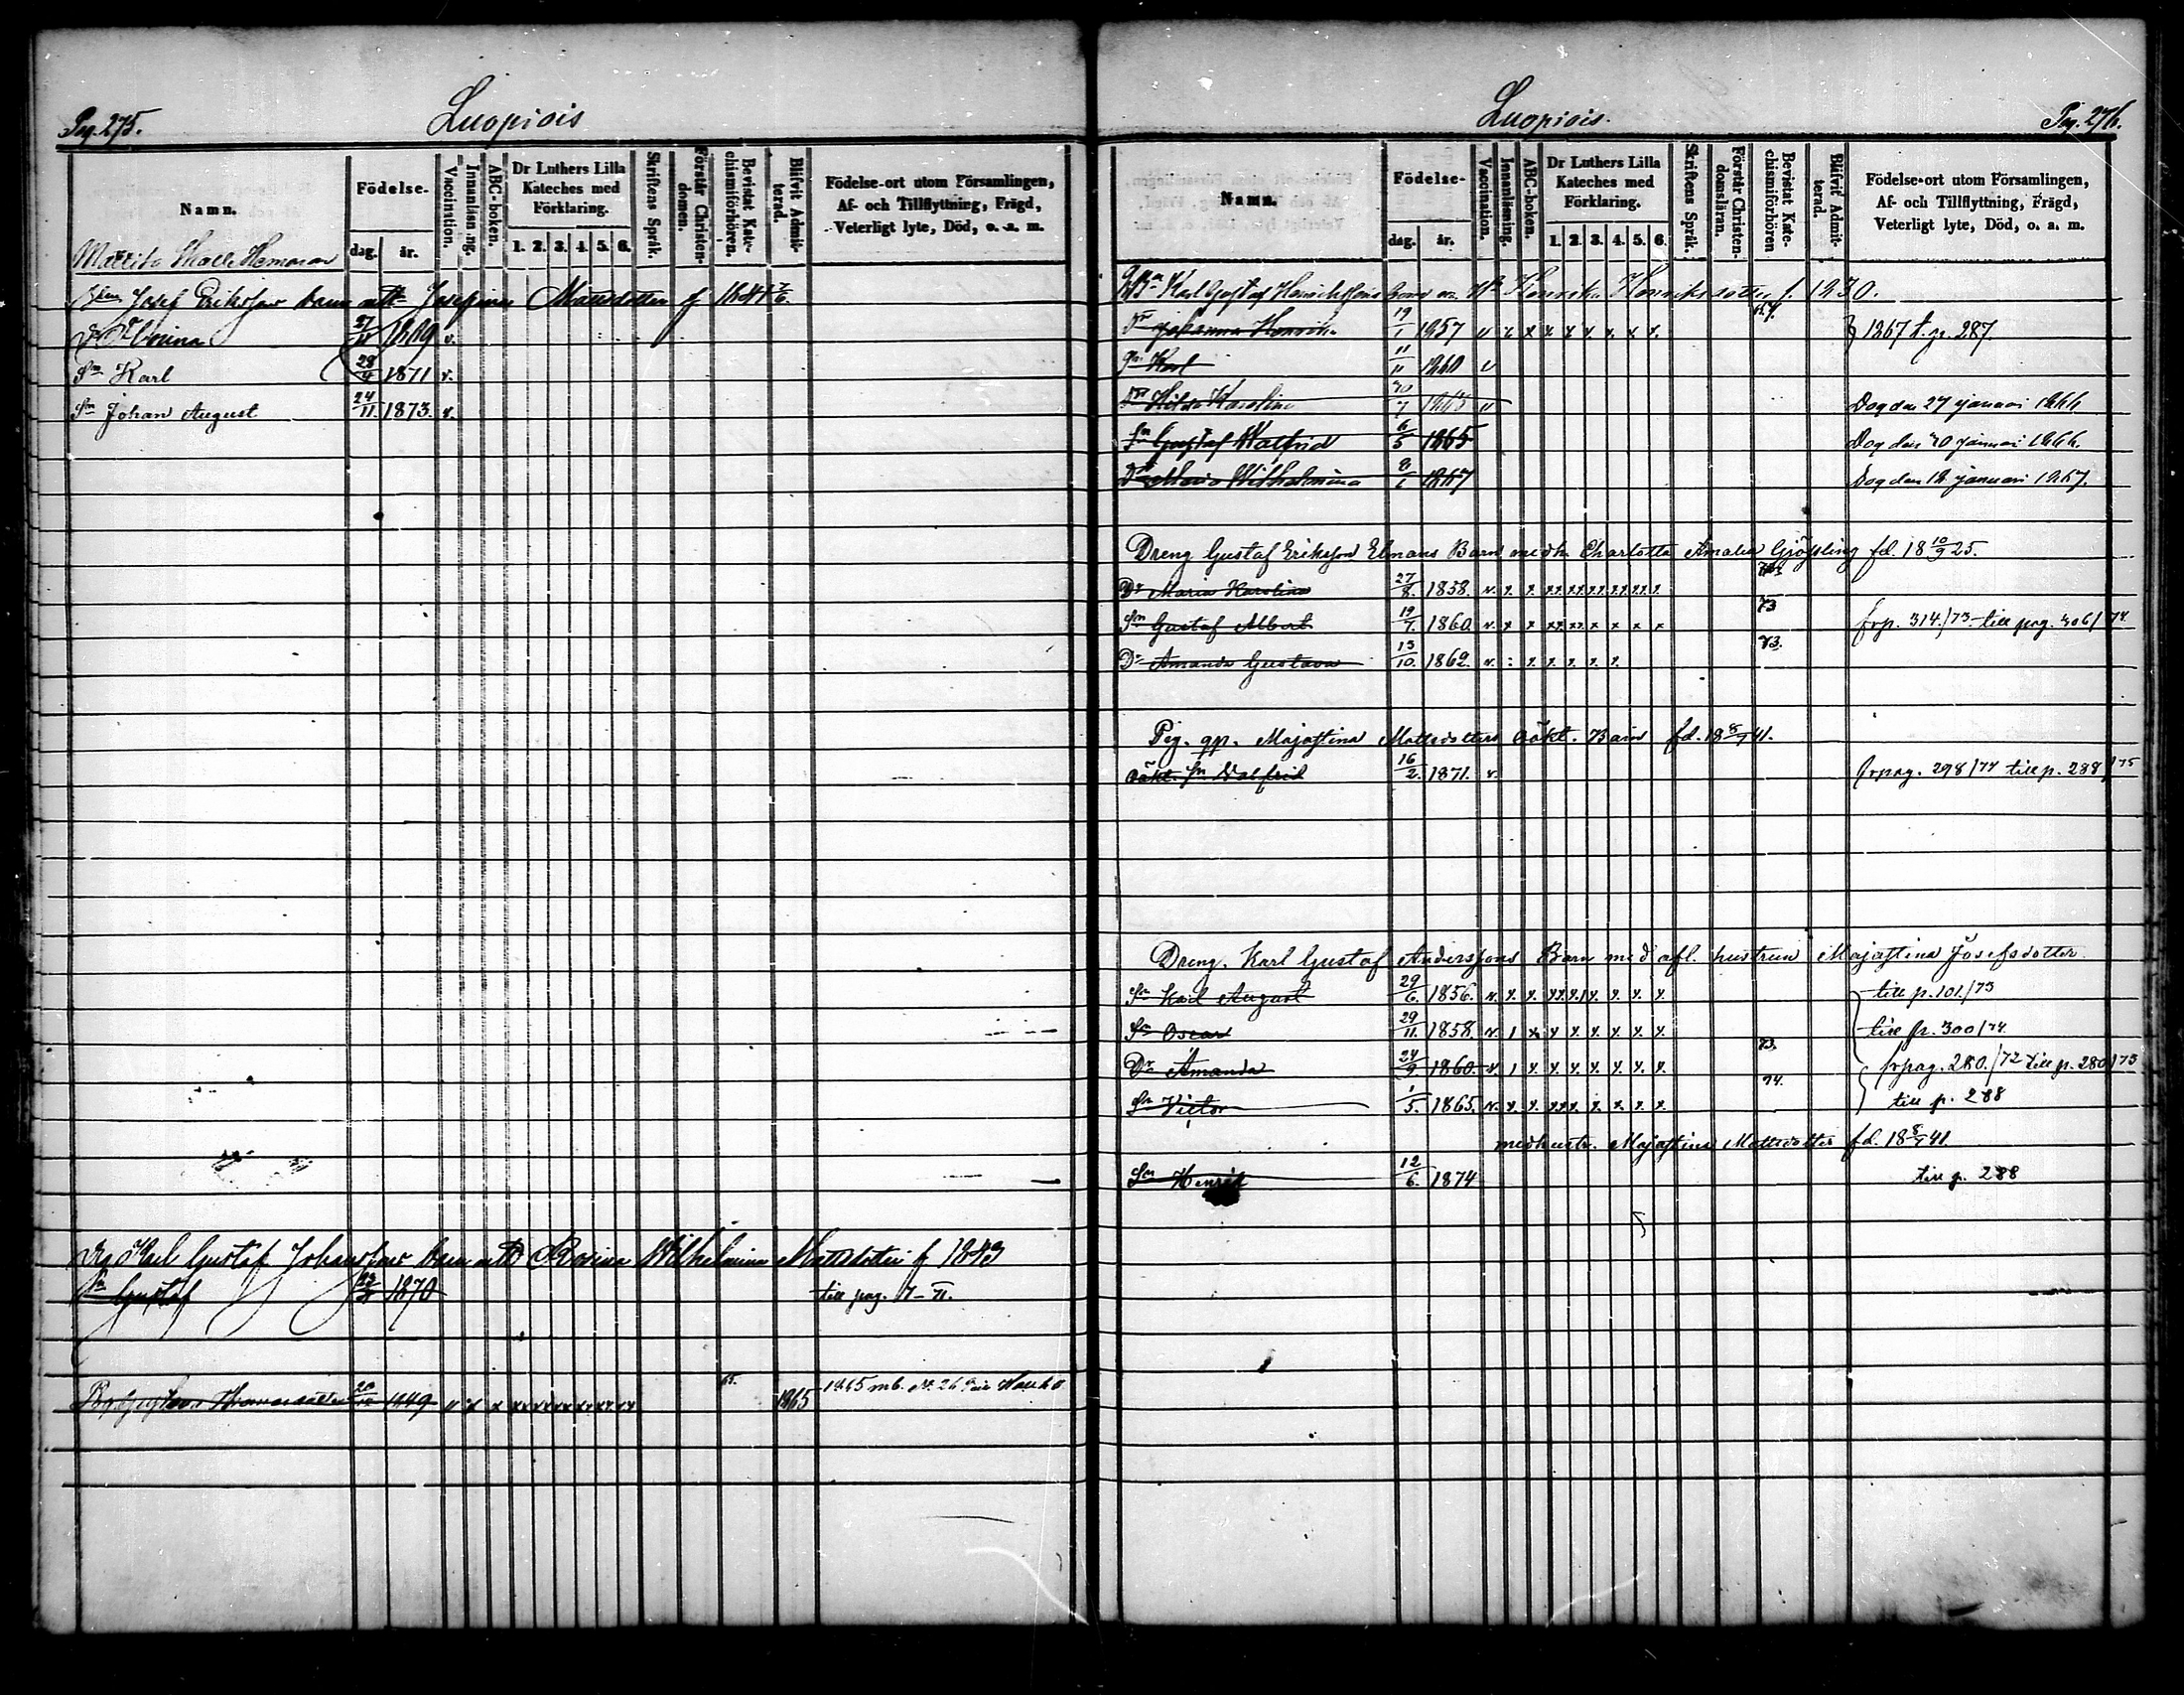 Pag. 275.
Luopiois
Namn.
Födelse-
dag. år.
Vaccination.
Innanläsning.
ABC-boken.
Dr Luthers Lilla Kateches med Förklaring.
1. 2. 3. 4. 5. 6.
Skriftens Språk.
Förstår Christen-domen.
Bevistat Kate-chismiförhören.
Blifvit Admit-terad.
Födelse-ort utom Församlingen, Af- och Tillflyttning, Frägd, Veterligt lyte, Död, o. a. m.
Josef Eriksons barn Josefina Mattsdotter f 1841
27/11 1869 v.
Sn Karl 28/4 1871 v.
Sn Johan August 24/11 1873. v.
Karl Gustaf Johansons barn Rosina Wilhelmina Mattsdotter f 1843
Sn Gustaf 1870 till pag. 7-II.
1849 65. 1865
Luopiois.
Pag. 276.
Namn.
Födelse-
dag. år.
Vaccination.
Innanläsning.
ABC-boken.
Dr Luthers Lilla Kateches med Förklaring.
1. 2. 3. 4. 5. 6.
Skriftens Språk.
Förstår Christen-domsläran.
Bevistat Kate-chismiförhören
Blifvit Admit-terad.
Födelse-ort utom Församlingen, Af- och Tillflyttning, Frägd, Veterligt lyte, Död, o. a. m.
Karl Gustaf Henrikssons barn Henrika Henriksdotter f. 1830.
Dr Johanna Henrika 19/1 1857 v x x x x x x x x. 1867 t. p. 287.
Sn Karl 11/11 1860 v
Dr Hilda Karolina 1863 v Dog den 27 januari 1866
Sn Gustaf Walfrid 6/5 1865 Dog den 20 januari 1866.
Dr Maria Wilhelmina 8/1 1867 Dog den 18 januari 1867.
Dreng Gustaf Erikson Elmans Barn medh. Charlotta Amalia Gjösling fd. 18 10/9 25.
Dr Maria Karolina 27/8. 1858. v. x. x. xx. xx. xx. xx. xx. x.
Sn Gustaf Albert 19/7. 1860. v. x x xx. xx. x x x x 73 frp. 314./73. till pag. 306/74
Dr Amanda Gustava 13/10. 1862. v. : x. x. x. x. x. 73.
Pig. gp. Majastina Mattsdotters oäkt. Barn fd. 18 8/7 41.
oäkt. Sn Walfrid 16/2. 1871. v. frpag. 298/74 till p. 288/75
Dreng. Karl Gustaf Anderssons Barn med afl. hustrun Majastina Josefsdotter
Sn Karl August 29/6. 1856. v. x. x. xx. x. x. x. x. x. till p. 101./73
Sn Oscar 29/11. 1858. v. 1 x. x x. x. x. x. x. till p. 300/74.
Dr Amanda 24/9 1860. v. 1 x. x. x. x. x. x. x. 73. frpag. 280./72 till p. 280/73
Sn Victor 1/5. 1865. v. x. x. xx x. x. x. x. x. 74. till p. 288
medhustr. Majastina Mattsdotter fd. 18 8/7 41
Sn Henrik 12/6. 1874 till p. 288